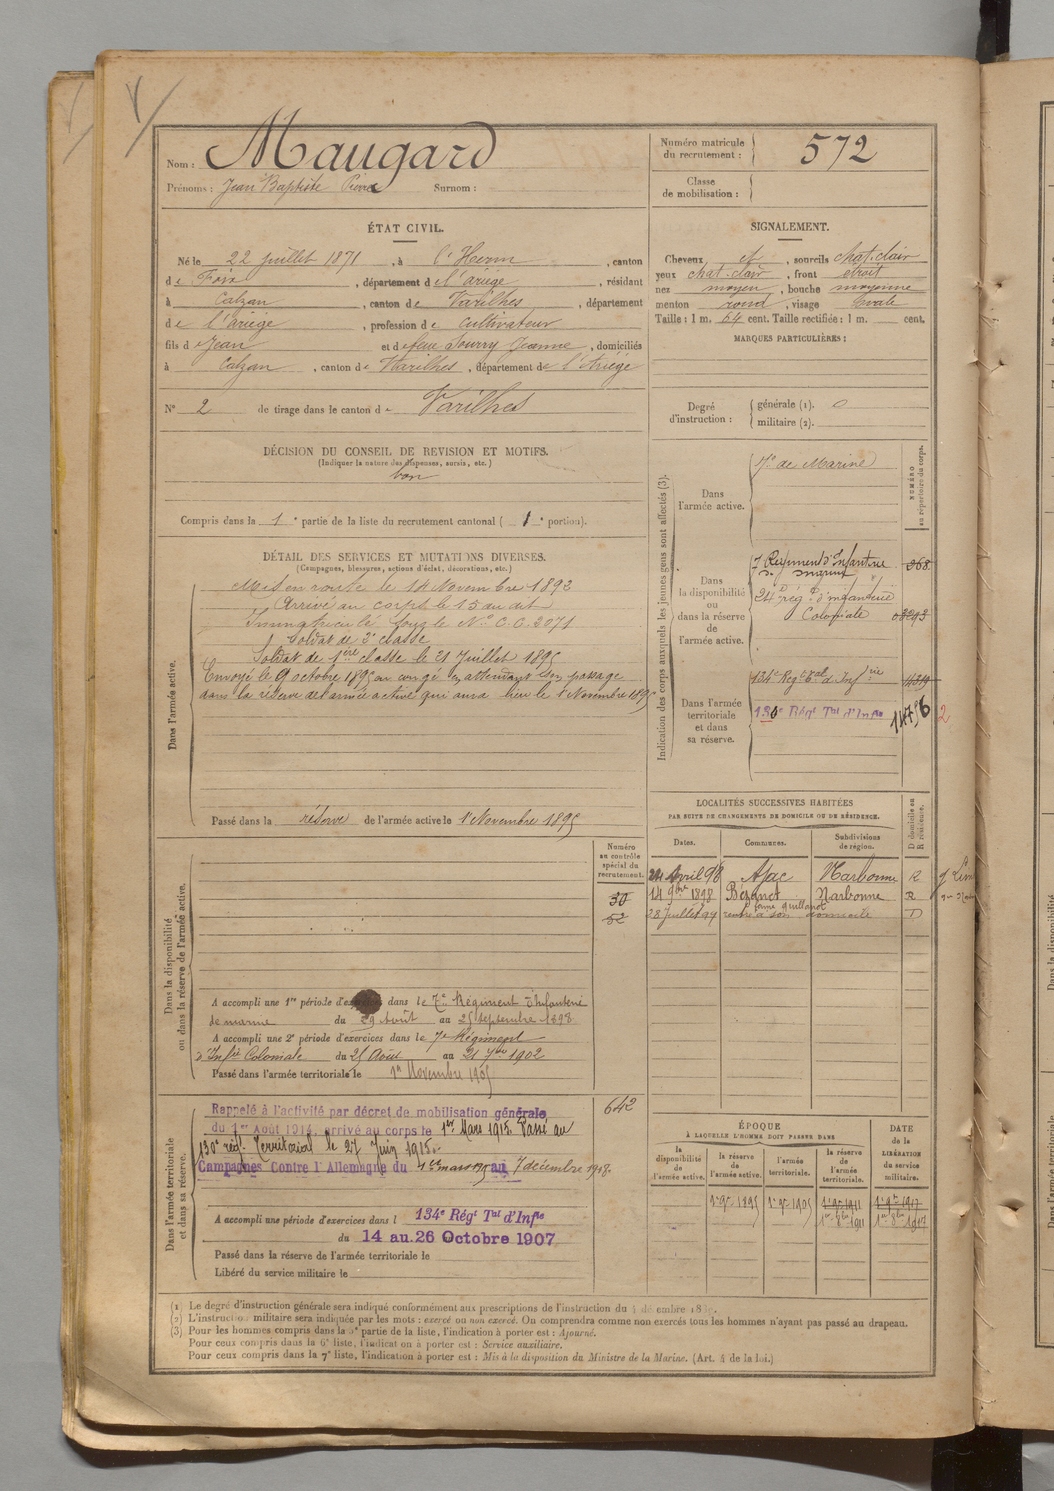 Nom : Maugard
Prénoms : Jean Baptiste Pierre Surnom :
Numéro matricule du recrutement : 572
Classe de mobilisation :
ÉTAT CIVIL.
Né le 22 juillet 1871, à l'Herm, canton
de Foix, département de l'ariège, résidant
à Calzan, canton de Varilhes, département
de l'ariège, profession de cultivateur
fils de Jean et de feue Sourry Jeanne, domiciliés
à Calzan, canton de Varilhes, département de l'Ariège
N° 2 de tirage dans le canton de Varilhes
DÉCISION DU CONSEIL DE REVISION ET MOTIFS.
(Indiquer la nature des dispenses, sursis, etc.)
bon
Compris dans la 1e partie de la liste du recrutement cantonal (1e portion).
DÉTAIL DES SERVICES ET MUTATIONS DIVERSES.
(Campagnes, blessures, actions d'éclat, décorations, etc.)
Dans l'armée active.
Mis en route le 14 Novembre 1892
Arrivé au corps le 15 au dit
Immatriculé sous le N° C.C. 3071
Soldat de 2e classe
Soldat de 1ère classe le 21 Juillet 1895
Envoyé le 9 octobre 1895 en congé en attendant son passage
dans la réserve de l'armée active qui aura lieu le 1 Novembre 1895
Passé dans la réserve de l'armée active le 1 Novembre 1895
Dans la disponibilité ou dans la réserve de l'armée active.
Numéro au contrôle spécial du recrutement.
30
52
A accompli une 1re période d'exercices dans le 7e Régiment d'Infanterie
de marine du 29 Août au 25 septembre 1898
A accompli une 2e période d'exercices dans le 7e Régiment
d'Infie Coloniale du 25 Aout au 21 7bre 1902
Passé dans l'armée territoriale le 1er Novembre 1905
Dans l'armée territoriale et dans sa réserve.
642
Rappelé à l'activité par décret de mobilisation générale
du 1er Août 1914, arrivé au corps le 1er Mars 1915. Passé au
130e régt Territorial le 27 Juin 1915.
Campagnes Contre l'Allemagne du 1er mars 1915 au 7 décembre 1918.
A accompli une période d'exercices dans l 134e Régt Tal d'Infie
du 14 au 26 Octobre 1907
Passé dans la réserve de l'armée territoriale le
Libéré du service militaire le
SIGNALEMENT.
Cheveux et, sourcils chat. clair
yeux chat. clair, front etroit
nez moyen, bouche moyenne
menton rond, visage ovale
Taille : 1 m. 64 cent. Taille rectifiée : 1 m. cent.
MARQUES PARTICULIÈRES :
Degré d'instruction :
générale (1). 0
militaire (2).
Indication des corps auxquels les jeunes gens sont affectés (3).
NUMÉRO au répertoire du corps.
Dans l'armée active.
7e de Marine
Dans la disponibilité ou dans la réserve de l'armée active.
7 Regiment d'Infanterie
de marine 368
24e rég. d'infanterie
Coloniale 03293
Dans l'armée territoriale et dans sa réserve.
134e Régt Tal d'Infrie
130e Régt Tal d'Infie
LOCALITÉS SUCCESSIVES HABITÉES
PAR SUITE DE CHANGEMENTS DE DOMICILE OU DE RÉSIDENCE.
Dates. Communes. Subdivisions de région. D domicile ou R résidence.
24 Avril 98 Ajac Narbonne R
14 9bre 1898 Narbonne R
28 juillet 99 rentré à son domicile D
ÉPOQUE
À LAQUELLE L'HOMME DOIT PASSER DANS
la disponibilité de l'armée active.
la réserve de l'armée active.
l'armée territoriale.
la réserve de l'armée territoriale.
DATE de la LIBÉRATION du service militaire.
1er 9e 1895 1er 9e 1905 1er 9e 1911 1er 9e 1917
1er 8bre 1911 1er 8bre 1917
(1) Le degré d'instruction générale sera indiqué conformément aux prescriptions de l'instruction du
(2) L'instruction militaire sera indiquée par les mots : exercé ou non exercé. On comprendra comme non exercés tous les hommes n'ayant pas passé au drapeau.
(3) Pour les hommes compris dans la 5e partie de la liste, l'indication à porter est : Ajourné.
Pour ceux compris dans la 6e liste, l'indication à porter est : Service auxiliaire.
Pour ceux compris dans la 7e liste, l'indication à porter est : Mis à la disposition du Ministre de la Marine. (Art. 4 de la loi.)